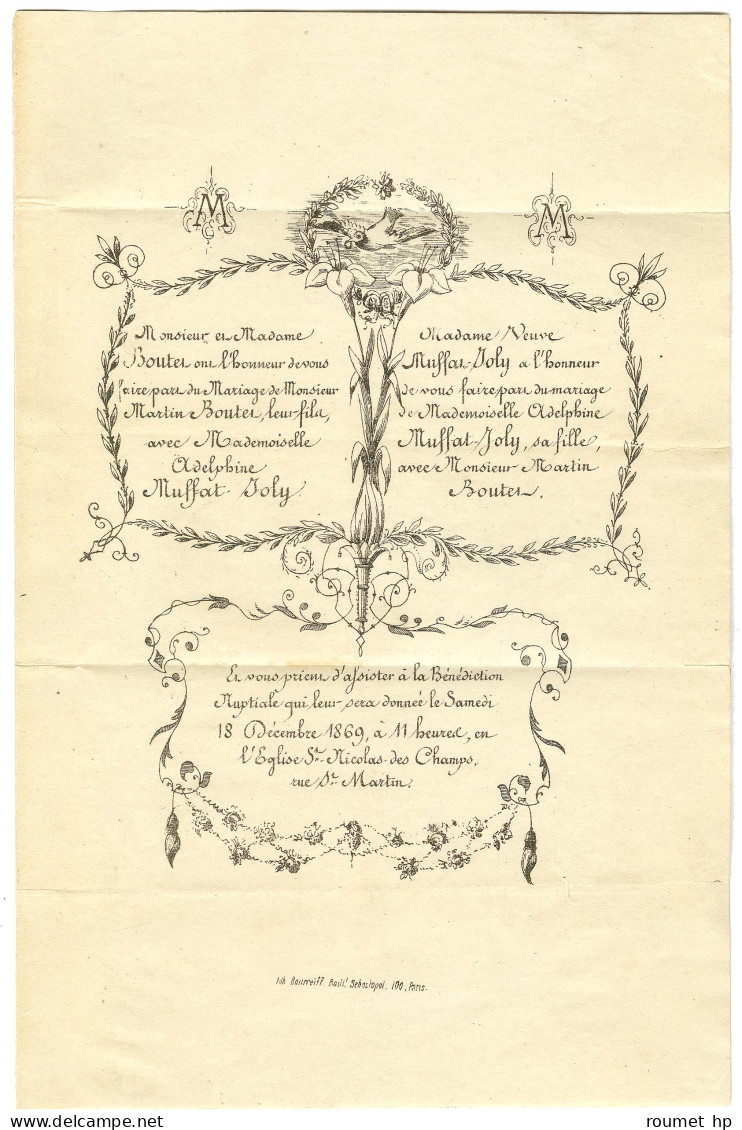 M
M
Monsieur et Madame
Boutet ont l'honneur de vous
faire part du Mariage de Monsieur
Martin Boutet, leur fils,
avec Mademoiselle
Adelphine
Muffat-Joly.
Madame Veuve
Muffat-Joly a l'honneur
de vous faire part du mariage
de Mademoiselle Adelphine
Muffat-Joly, sa fille,
avec Monsieur Martin
Boutet.
Et vous prient d'assister à la Bénédiction
Nuptiale qui leur sera donnée le Samedi
18 Décembre 1869, à 11 heures, en
l'Eglise St. Nicolas des Champs,
rue St. Martin.
Lith. Boul.d Sebastopol. 100, Paris.
roumet hp